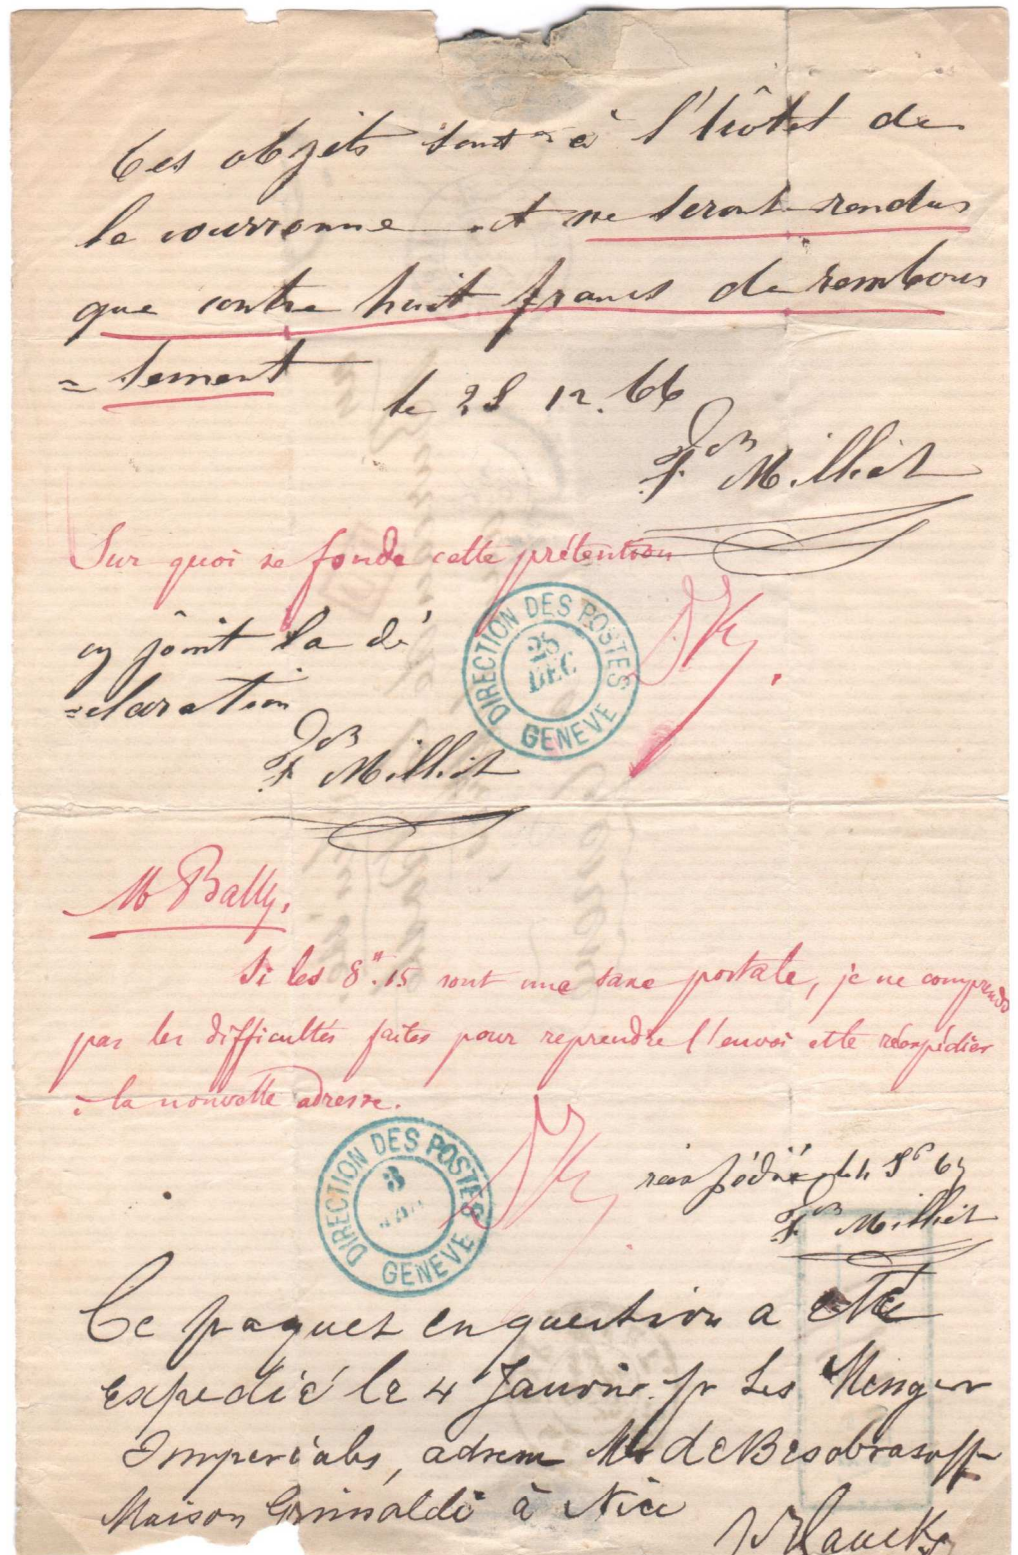 Ces objets sont à l'hôtel de
la courronne et ne seront rendus
que contre huit francs de rembour
= sement
le 28 12. 66
Milliet
Sur quoi se fonde cette prétention
cy joint la dé
=claration
Milliet
DIRECTION DES POSTES
28
DEC
GENEVE
Mr Bally,
Si les 8".15 sont une taxe postale, je ne comprends
pas les difficultés faites pour reprendre l'envoi et le réexpédier
à la nouvelle adresse.
DIRECTION DES POSTES
3
GENEVE
Milliet
Ce paquet en question a été
Expedié le 4 Janvier pr Les Messager
Imperiales, adresse Mr de Besobrasoff
Maison Grimaldi à Nice